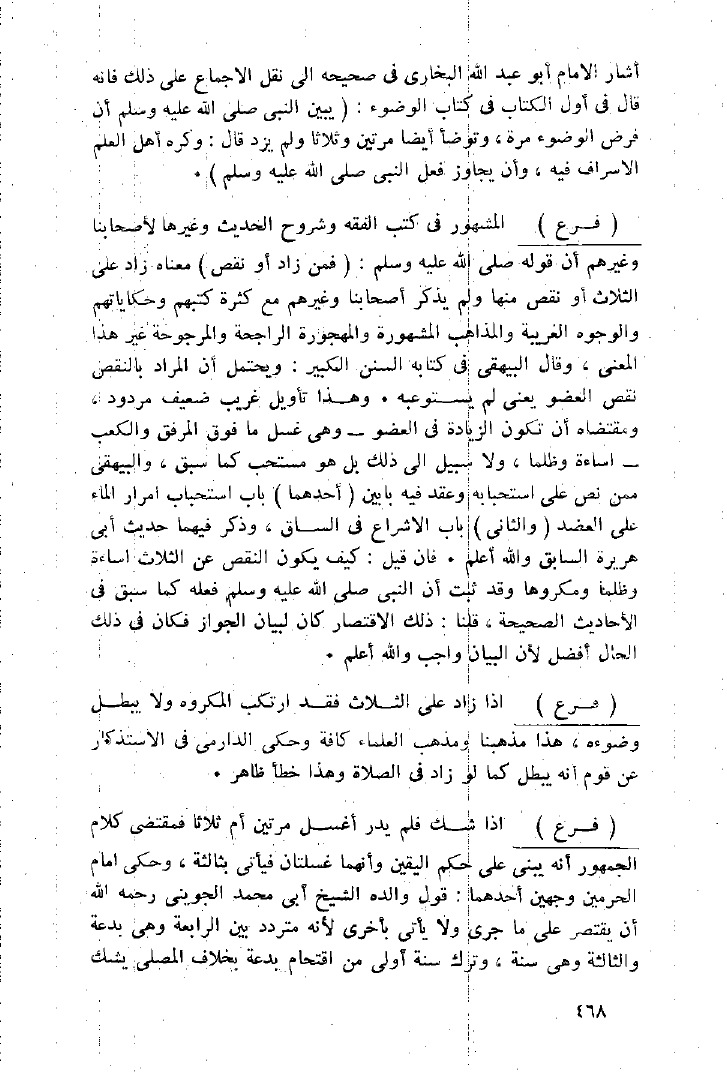 أشار الامام أبو عبد الله البخارى فى صحيحه الى نقل الاجماع على ذلك فانه
قال فى أول الكتاب فى كتاب الوضوء : ( يبين النبى صلى الله عليه وسلم أن
فرض الوضوء مرة ، وتوضأ أيضا مرتين وثلاثا ولم يزد قال : وكره أهل العلم
الاسراف فيه ، وأن يجاوز فعل النبى صلى الله عليه وسلم ) ٠
( فــرع ) المشهور فى كتب الفقه وشروح الحديث وغيرها لأصحابنا
وغيرهم أن قوله صلى الله عليه وسلم : ( فمن زاد أو نقص ) معناه زاد على
الثلاث أو نقص منها ولم يذكر أصحابنا وغيرهم مع كثرة كتبهم وحكاياتهم
والوجوه الغريبة والمذاهب المشهورة والمهجورة الراجحة والمرجوحة غير هذا
المعنى ، وقال البيهقى فى كتابه السنن الكبير : ويحتمل أن المراد بالنقص
نقص العضو يعنى لم يســتوعبه ٠ وهــذا تأويل غريب ضعيف مردود ،
ومقتضاه أن تكون الزيادة فى العضو ــ وهى غسل ما فوق المرفق والكعب
ــ اساءة وظلما ، ولا سبيل الى ذلك بل هو مستحب كما سبق ، والبيهقى
ممن نص على استحبابه وعقد فيه بابين ( أحدهما ) باب استحباب امرار الماء
على العضد ( والثانى ) باب الاشراع فى الســاق ، وذكر فيهما حديث أبى
هريرة السابق والله أعلم ٠ فان قيل : كيف يكون النقص عن الثلاث اساءة
وظلما ومكروها وقد ثبت أن النبى صلى الله عليه وسلم فعله كما سبق فى
الأحاديث الصحيحة ، قلنا : ذلك الاقتصار كان لبيان الجواز فكان فى ذلك
الحال أفضل لأن البيان واجب والله أعلم ٠
( فــرع ) اذا زاد على الثــلاث فقــد ارتكب المكروه ولا يبطــل
وضوءه ، هذا مذهبنا ومذهب العلماء كافة وحكى الدارمى فى الاستذكار
عن قوم أنه يبطل كما لو زاد فى الصلاة وهذا خطأ ظاهر ٠
( فــرع ) اذا شــك فلم يدر أغســل مرتين أم ثلاثا فمقتضى كلام
الجمهور أنه يبنى على حكم اليقين وأنهما غسلتان فيأتى بثالثة ، وحكى امام
الحرمين وجهين أحدهما : قول والده الشيخ أبى محمد الجوينى رحمه الله
أن يقتصر على ما جرى ولا يأتى بأخرى لأنه متردد بين الرابعة وهى بدعة
والثالثة وهى سنة ، وترك سنة أولى من اقتحام بدعة بخلاف المصلى يشك
٤٦٨